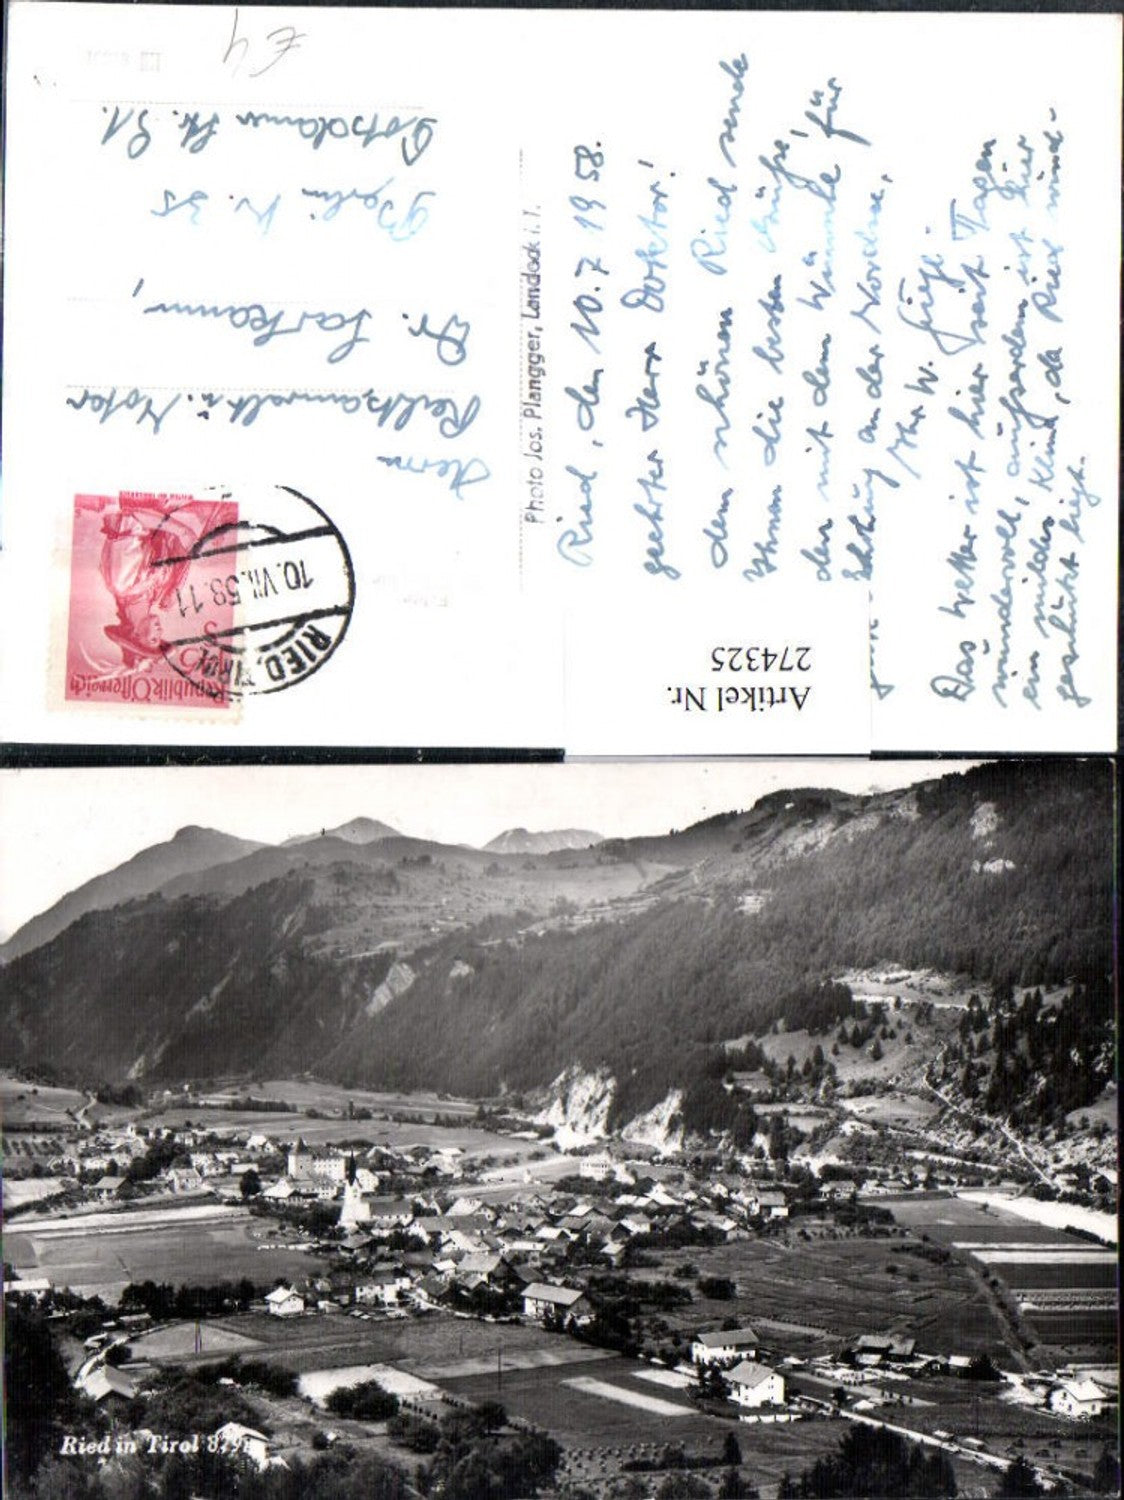 € 4
Herrn
Rechtsanwalt u. Notar
Dr.
Berlin W. 35
Potsdamer Str. 91.
Republik Österreich
RIED, TIROL
10.VII.58.11
Photo Jos. Plangger, Landeck i. T.
Ried, den 10.7.1958.
geehrter Herr Doktor!
dem schönen Ried sende
Ihnen die besten Grüße,
den mit dem Wunsche für
Erholung an der Nordsee.
Ihr W.
Das Wetter ist hier seit Tagen
wundervoll, außerdem ist hier
ein mildes Klima, da Ried wind-
geschützt liegt.
Artikel Nr.
274325
Ried in Tirol 879m